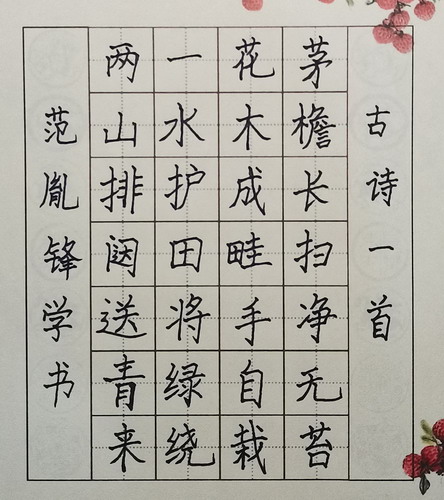 古诗一首
茅檐长扫净无苔
花木成畦手自栽
一水护田将绿绕
两山排闼送青来
范胤锋学书